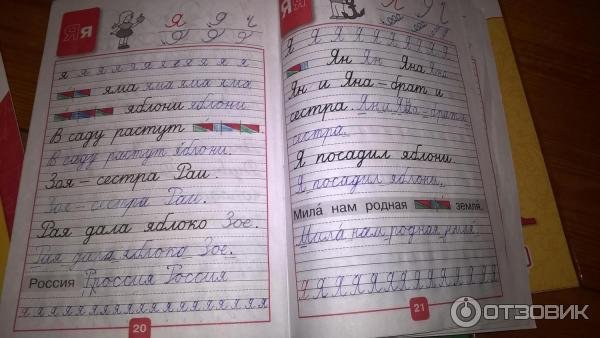 Яя
Я Я Я
я я я я я я я я я я
яма яма яма яма
яблони яблони
В саду растут .
В саду растут яблони.
Зоя – сестра Раи.
Зоя – сестра Раи.
Рая дала яблоко Зое.
Рая дала яблоко Зое.
Россия Россия Россия
я я я я я я я я я я я я я я я я
20
Яя
Я Я Я Я Я Я Я Я Я
Ян Ян Яна Яна
Ян и Яна – брат и
сестра. Ян и Яна – брат и
сестра.
Я посадил яблони.
Я посадил яблони.
Мила́ нам родная земля.
Мила́ нам родная земля.
Я Я Я Я Я Я Я Я Я Я Я Я Я
21
ОТЗОВИК